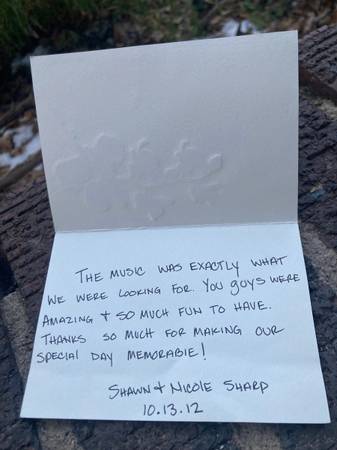 The music was exactly what
we were looking for. You guys were
amazing + so much fun to have.
Thanks so much for making our
special day memorable!
Shawn + Nicole Sharp
10.13.12